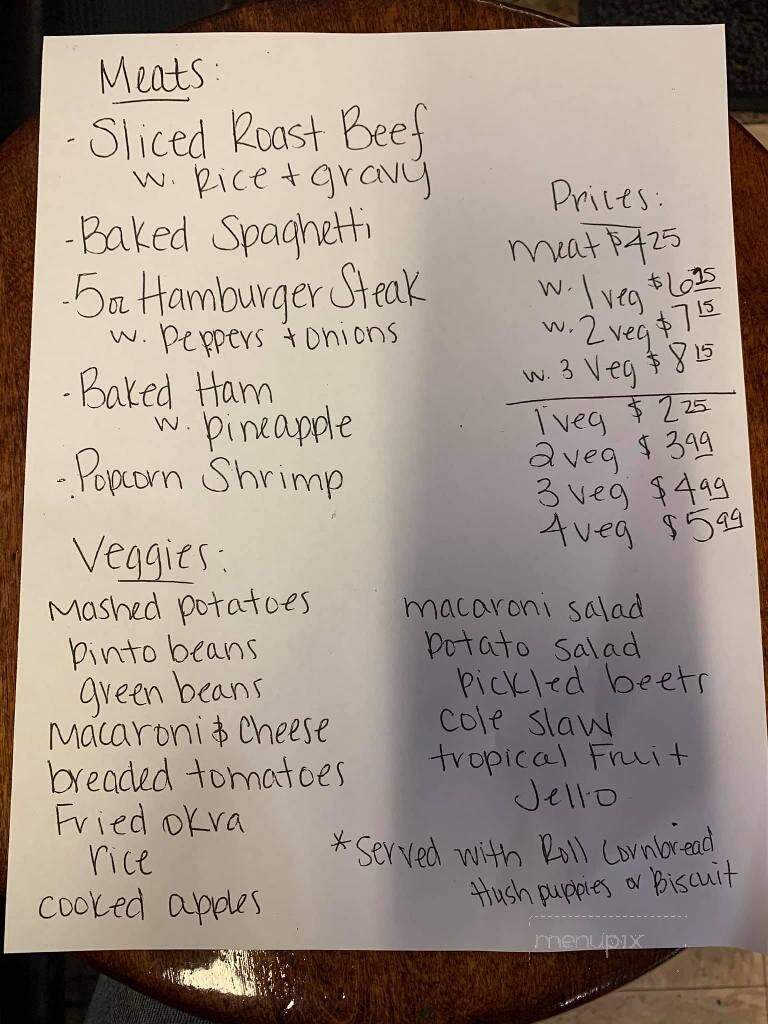 Meats:
- Sliced Roast Beef
w. Rice + gravy
- Baked Spaghetti
- 5oz Hamburger Steak
w. Peppers + onions
- Baked Ham
w. pineapple
- Popcorn Shrimp
Prices:
meat $4.25
w. 1 veg $6.15
w. 2 veg $7.15
w. 3 Veg $8.15
1 veg $2.25
2 veg $3.99
3 veg $4.99
4 veg $5.99
Veggies:
Mashed potatoes
pinto beans
green beans
Macaroni & Cheese
breaded tomatoes
Fried okra
rice
cooked apples
macaroni salad
potato salad
pickled beets
cole slaw
tropical Fruit
Jello
*Served with Roll Cornbread
Hush puppies or Biscuit
menupix